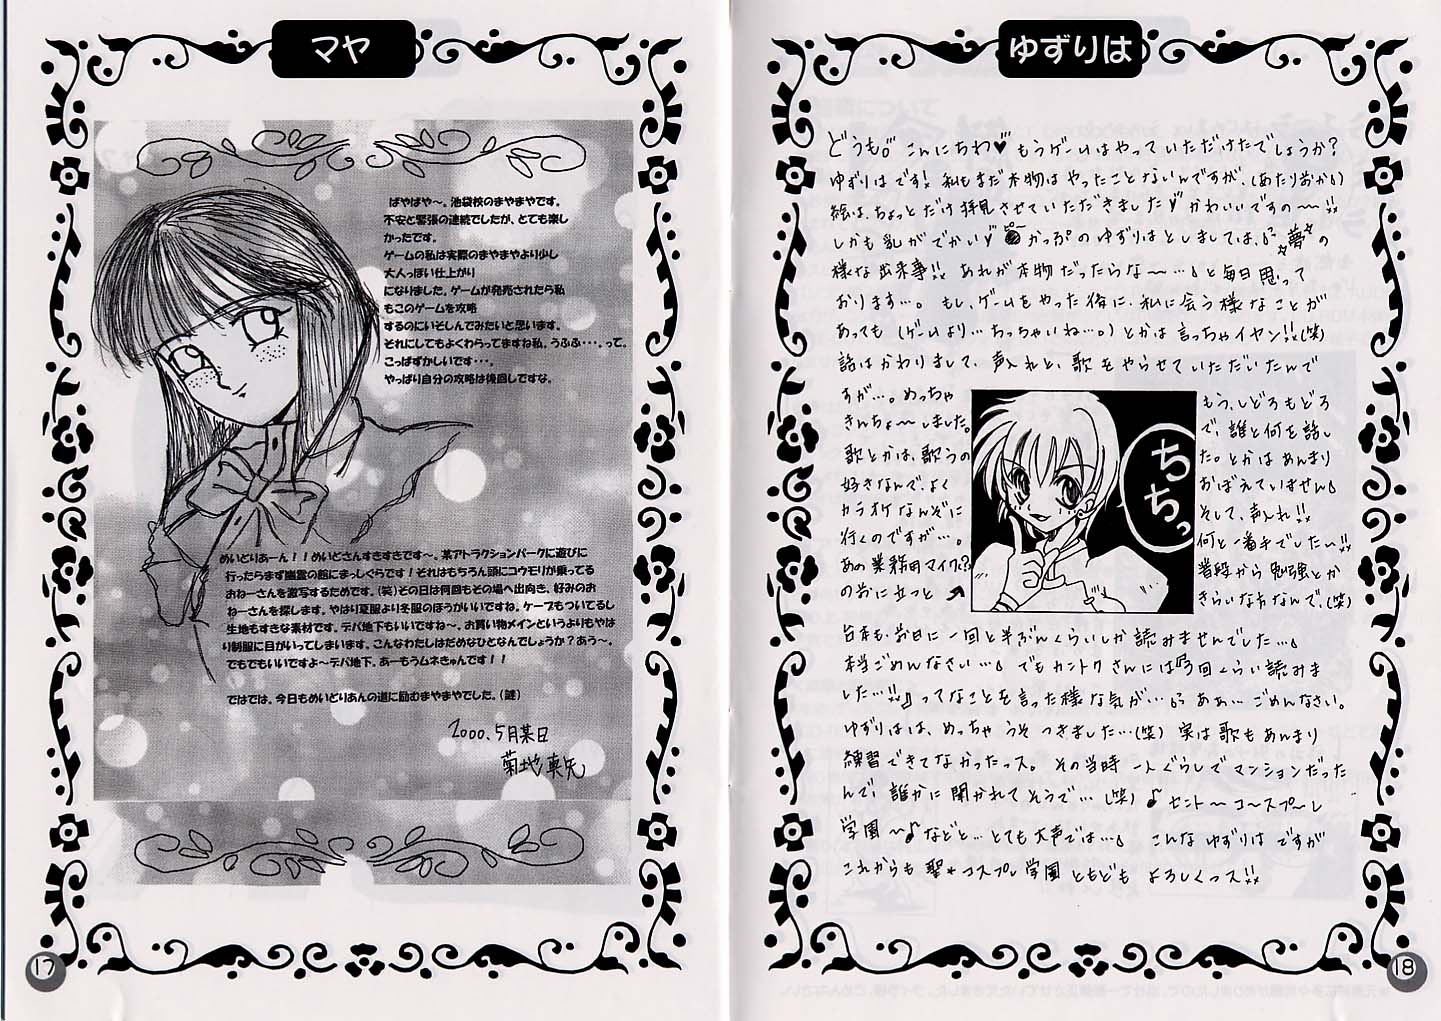 マヤ
ばやばや～。池袋校のまやまやです。
不安と緊張の連続でしたが、とても楽し
かったです。
ゲームの私は実際のまやまやより少し
大人っぽい仕上がり
になりました。ゲームが発売されたら私
もこのゲームを攻略
するのにいそしんでみたいと思います。
それにしてもよくわらってますね私。うふふ・・・。って。
こっぱずかしいです・・・。
やっぱり自分の攻略は後回しですな。
めいどりあーん！！めいどさんすきすきです～。某アトラクションパークに遊びに
行ったらまず幽霊の館にまっしぐらです！それはもちろん頭にコウモリが乗ってる
おねーさんを激写するためです。(笑)その日は何回もその場へ出向き、好みのお
ねーさんを探します。やはり夏服より冬服のほうがいいですね。ケープもついてるし
生地もすきな素材です。デパ地下もいいですね～。お買い物メインというよりもやは
り制服に目がいってしまいます。こんなわたしはだめなひとなんでしょうか？あう～。
でもでもいいですよ～デパ地下。あーもうムネきゅんです！！
ではでは、今日もめいどりあんの道に励むまやまやでした。(謎)
2000.5月某日
菊地真矢
17
ゆずりは
どうも。こんにちわ♥もうゲームはやっていただけたでしょうか?
ゆずりはです!私もまだ本物はやったことないんですが、(あたりおか)
絵は、ちょっとだけ拝見させていただきました かわいいですの～!!
しかも乳がでかい かっぷのゆずりはとしましては、夢の
様な出来事!!あれが本物だったらな～…と毎日思って
おります…。もし、ゲームをやった後に、私に会う様なことが
あっても(ゲームより…ちっちゃいね…。)とかは言っちゃイヤン!!(笑)
話はかわりまして、声入れと、歌をやらせていただいたんで
すが…。めっちゃ
きんちょ～しました。
歌とかは、歌うの
好きなんで、よく
カラオケなんぞに
行くのですが…。
あの業務用マイク?
の前に立つと
ちちっ
もう、しどろもどろ
で、誰と何を話し
た。とかはあんまり
おぼえていません
そして、声入れ!!
何と一番手でした!!
普段から勉強とか
きらいな方なんで、(笑)
台本も、お日に一回と半ぶんくらいしか読みませんでした…
本当ごめんなさい…でもカントクさんには『今回くらい読みま
した…!!』ってなことを言った様な気が… ああ…ごめんなさい。
ゆずりはは、めっちゃうそつきました…(笑)実は歌もあんまり
練習できてなかったっス。その当時一人ぐらしでマンションだった
んで、誰かに聞かれてそうで…(笑)♪セント～コ～スプ～レ
学園～♪などと…とても大声では…。こんなゆずりはですが
これからも聖*コスプレ学園ともどもよろしくっス!!
18